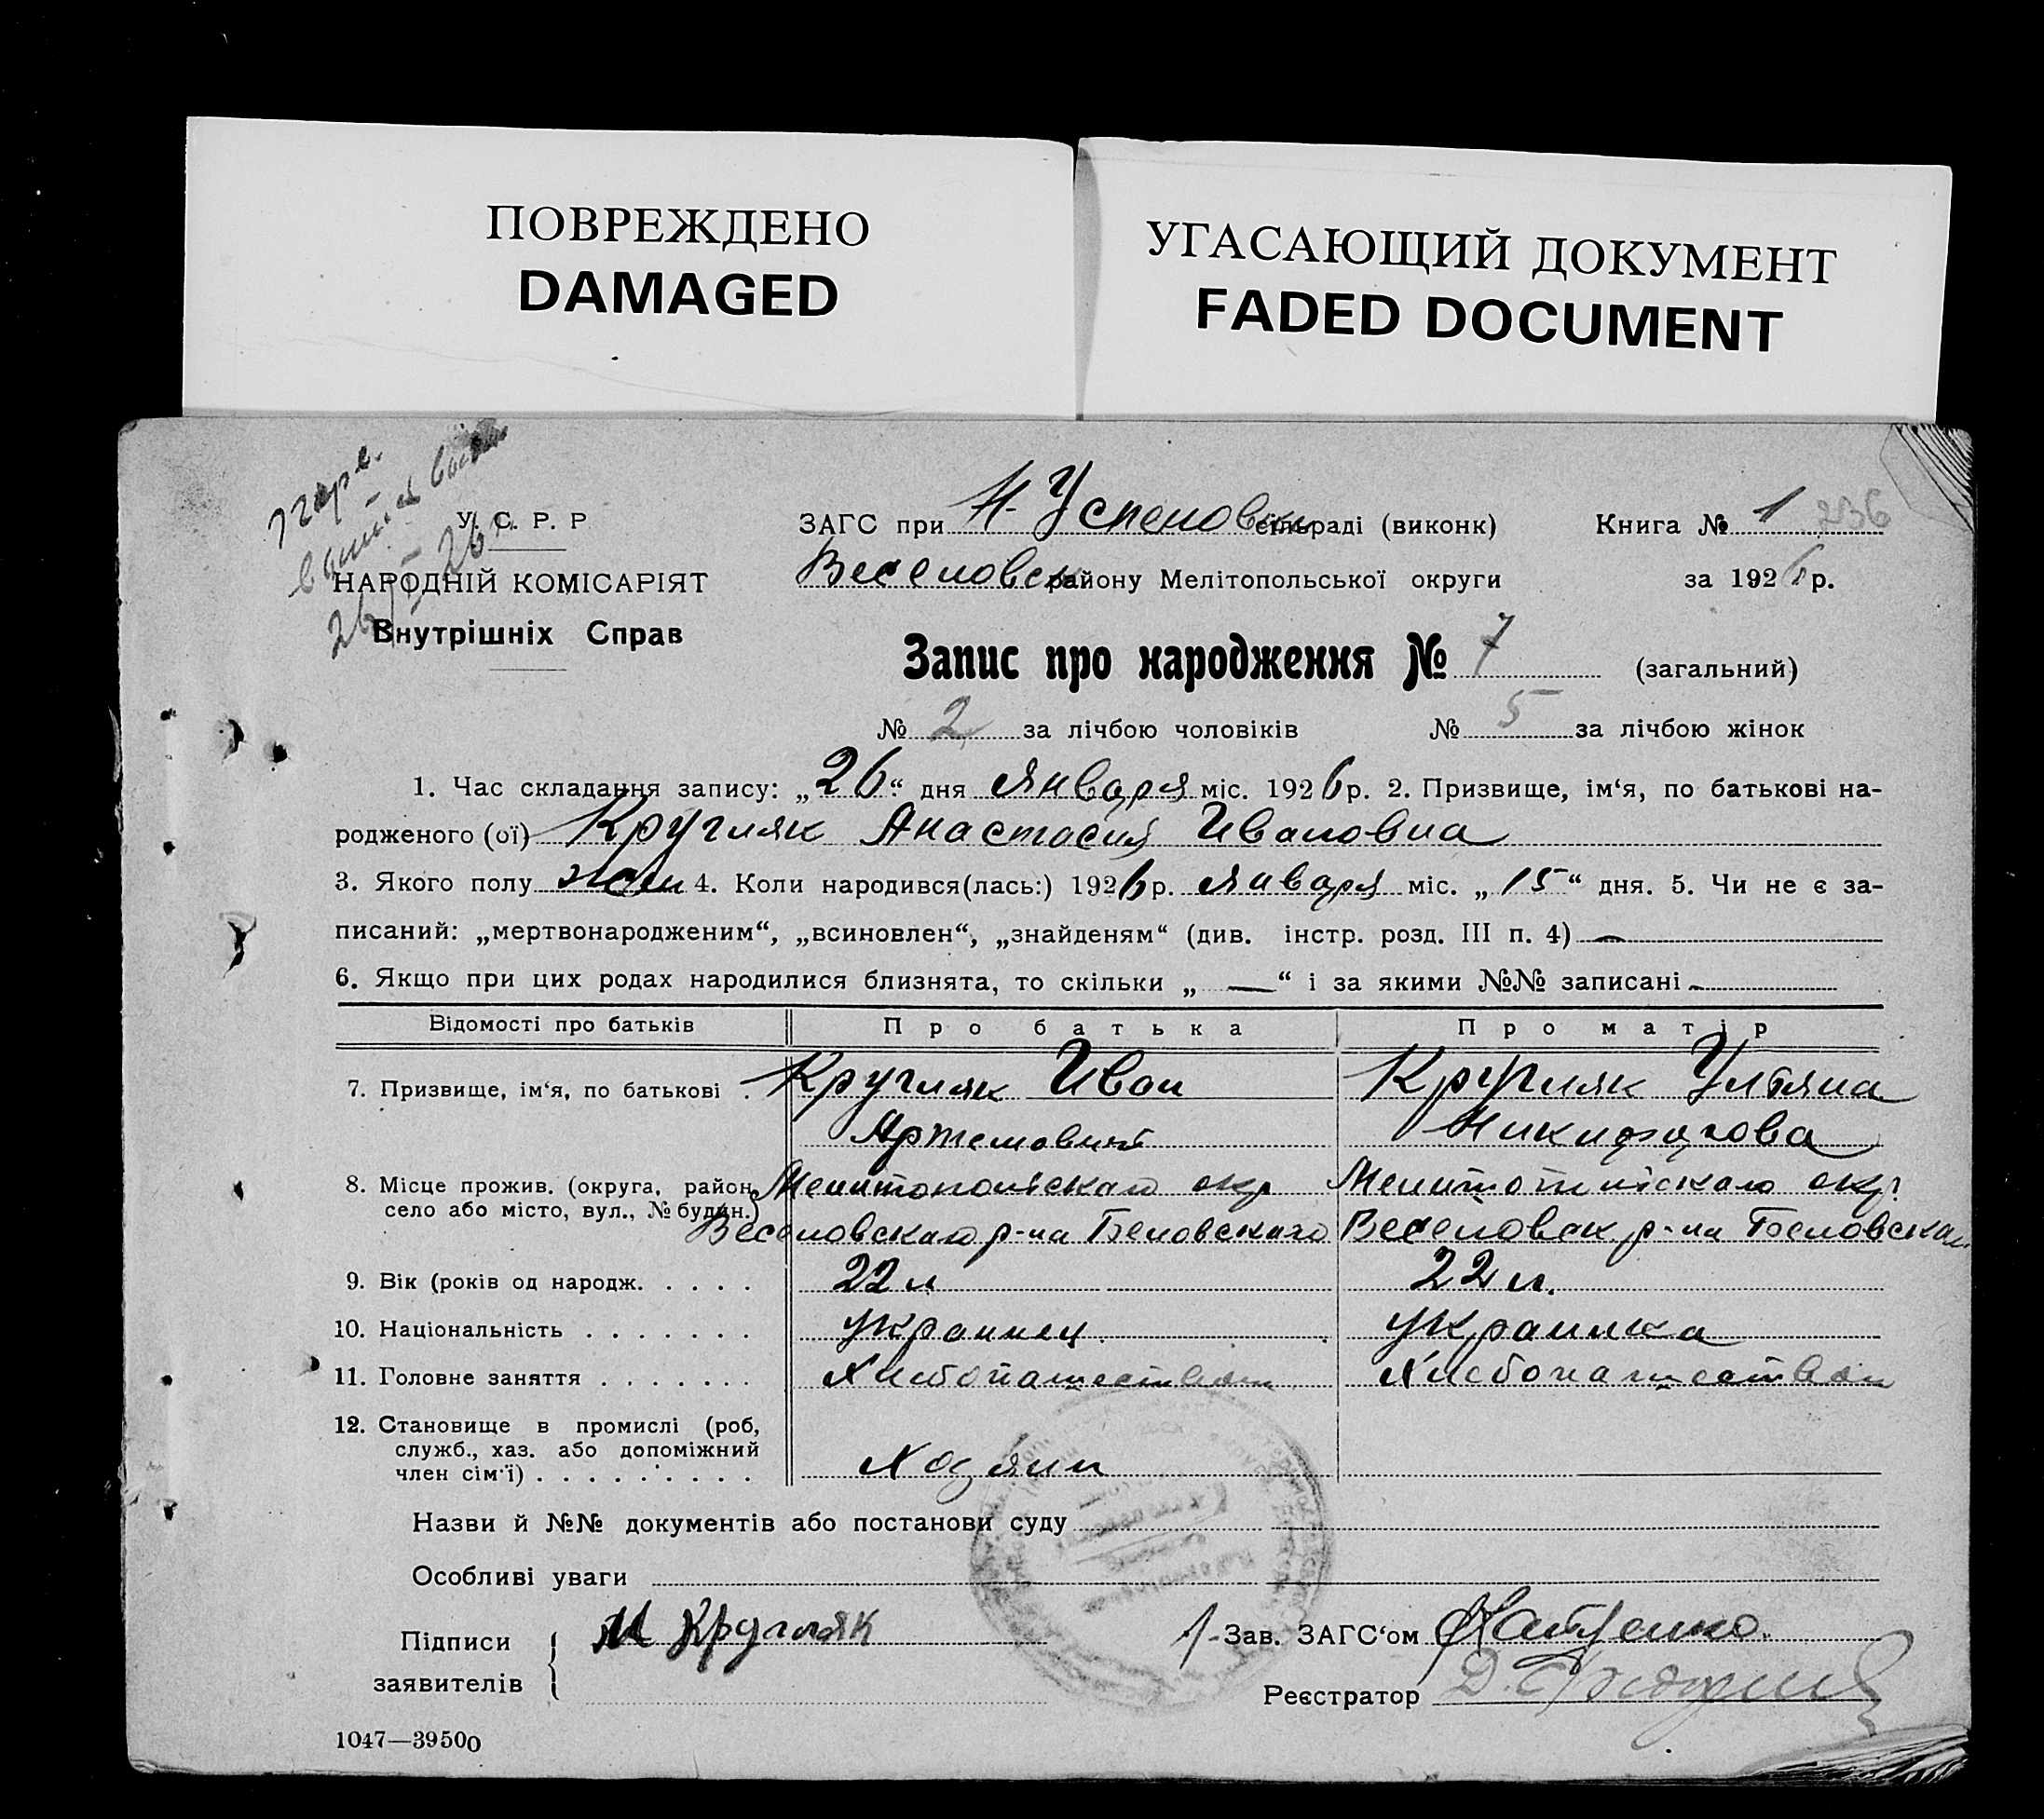 ПОВРЕЖДЕНО
DAMAGED
УГАСАЮЩИЙ ДОКУМЕНТ
FADED DOCUMENT
У. С. Р. Р
НАРОДНІЙ КОМІСАРІЯТ
Внутрішніх Справ
ЗАГС при Н-Успеновск сільраді (виконк)
Книга № 1 236
Веселовск району Мелітопольської округи
за 1926 р.
Запис про народження № 7 (загальний)
№ 2 за лічбою чоловіків № 5 за лічбою жінок
1. Час складання запису: „26“ дня Января міс. 1926 р. 2. Призвище, ім‘я, по батькові на-
родженого (ої) Кругляк Анастасия Ивановна
3. Якого полу жен 4. Коли народився(лась:) 1926 р. Января міс. „15“ дня. 5. Чи не є за-
писаний: „мертвонародженим“, „всиновлен“, „знайденям“ (див. інстр. розд. III п. 4) —
6. Якщо при цих родах народилися близнята, то скільки „ — “ і за якими №№ записані
Відомості про батьків Про батька Про матір
7. Призвище, ім‘я, по батькові . Кругляк Иван Кругляк Ульяна
Артемович Никифорова
8. Місце прожив. (округа, район, Мелитопольскаго окр Мелитопольскаго окр.
село або місто, вул., № будин.) Веселовскаго р-на Беловскаго Веселовск р-на Беловскаго
9. Вік (років од народж. . . . . 22 л 22 л.
10. Національність . . . . . . . украинец украинка
11. Головне заняття . . . . . . . Хлебопашеством Хлебопашеством
12. Становище в промислі (роб,
служб., хаз. або допоміжний
член сім‘ї) . . . . . . . . . Хозяин
Назви й №№ документів або постанови суду
Особливі уваги
Підписи И Кругляк Зав. ЗАГС‘ом
заявителів
Реєстратор
1047—39500